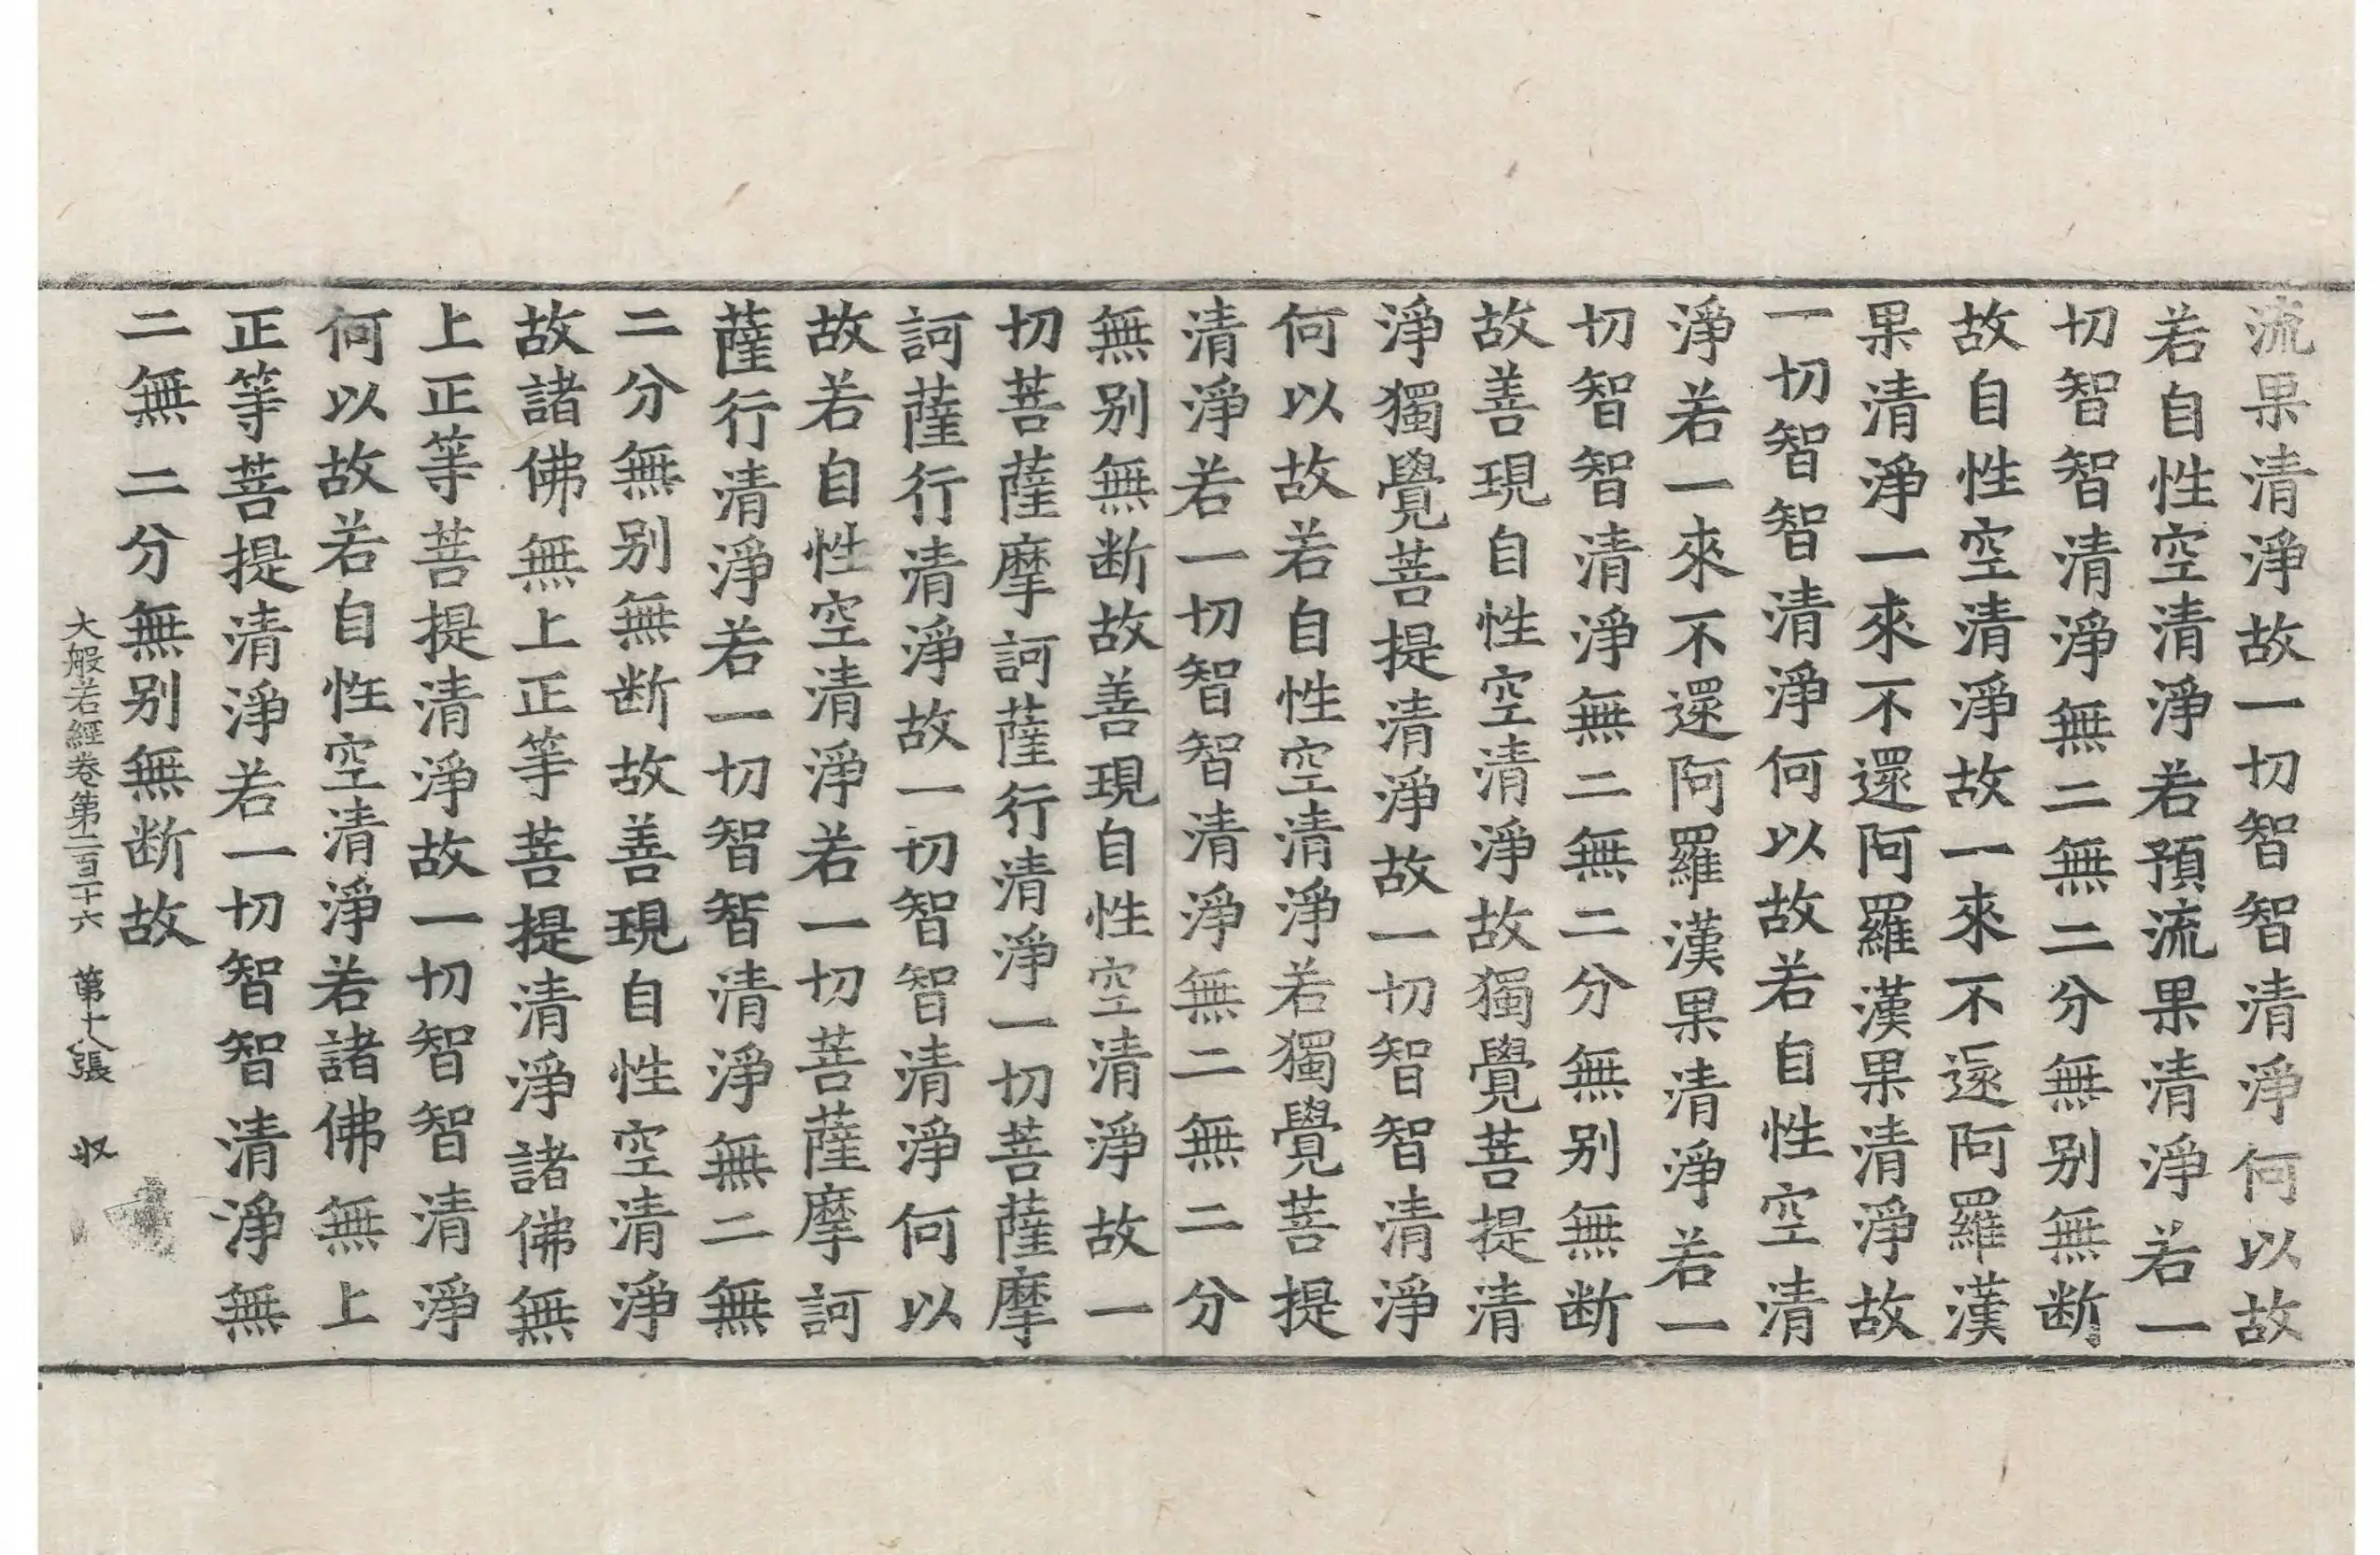 流果清淨故一切智智清淨何以故
若自性空清淨若預流果清淨若一
切智智清淨無二無二分無别無断
故自性空清淨故一來不還阿羅漢
果清淨一來不還阿羅漢果清淨故
一切智智清淨何以故若自性空清
淨若一來不還阿羅漢果清淨若一
切智智清淨無二無二分無别無断
故善現自性空清淨故獨覺菩提清
淨獨覺菩提清淨故一切智智清淨
何以故若自性空清淨若獨覺菩提
清淨若一切智智清淨無二無二分
無别無断故善現自性空清淨故一
切菩薩摩訶薩行清淨一切菩薩摩
訶薩行清淨故一切智智清淨何以
故若自性空清淨若一切菩薩摩訶
薩行清淨若一切智智清淨無二無
二分無别無断故善現自性空清淨
故諸佛無上正等菩提清淨諸佛無
上正等菩提清淨故一切智智清淨
何以故若自性空清淨若諸佛無上
正等菩提清淨若一切智智清淨無
二無二分無别無断故
大般若經卷第二百二十六 第十八張 收